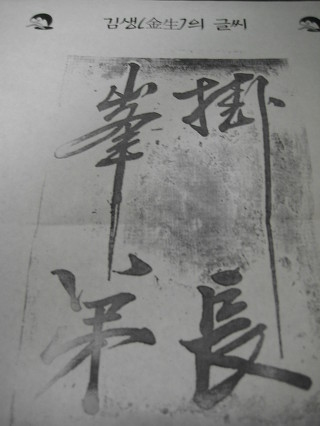 김생(金生)의 글씨
掛長
峯弟